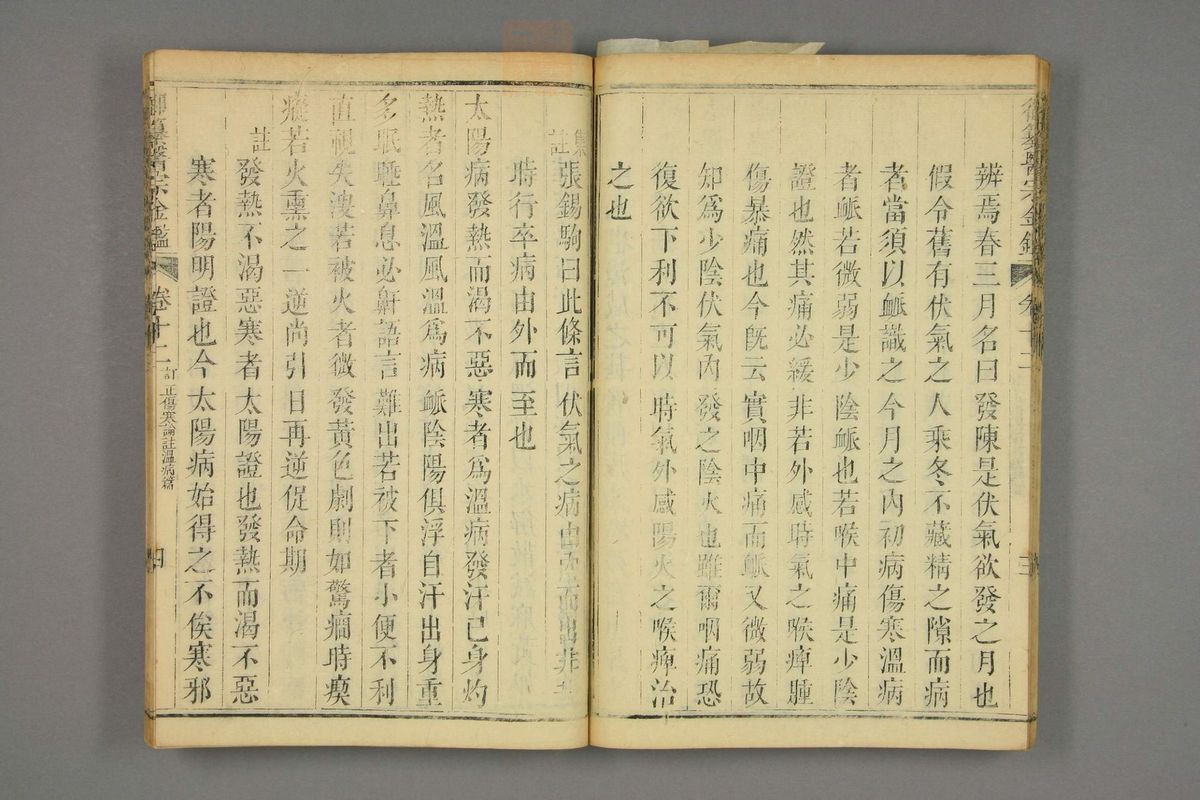 辨焉春三月名曰發陳是伏氣欲發之月也
假令舊有伏氣之人乘冬不藏精之隙而病
者當須以脈識之今月之內初病傷寒溫病
者脈若微弱是少陰脈也若喉中痛是少陰
證也然其痛必緩非若外感時氣之喉痺腫
傷暴痛也今既云實咽中痛而脈又微弱故
知爲少陰伏氣內發之陰火也雖爾咽痛恐
復欲下利不可以時氣外感陽火之喉痺治
之也
集註張錫駒曰此條言伏氣之病由內而出非
時行卒病由外而至也
太陽病發熱而渴不惡寒者爲溫病發汗已身灼
熱者名風溫風溫爲病脈陰陽俱浮自汗出身重
多眠睡鼻息必鼾語言難出若被下者小便不利
直視失溲若被火者微發黃色劇則如驚癇時瘼
瘲若火熏之一逆尚引日再逆促命期
註發熱不渴惡寒者太陽證也發熱而渴不惡
寒者陽明證也今太陽病始得之不俟寒邪
御纂醫宗金鑑 卷十二 訂正傷寒論註溫病篇 四